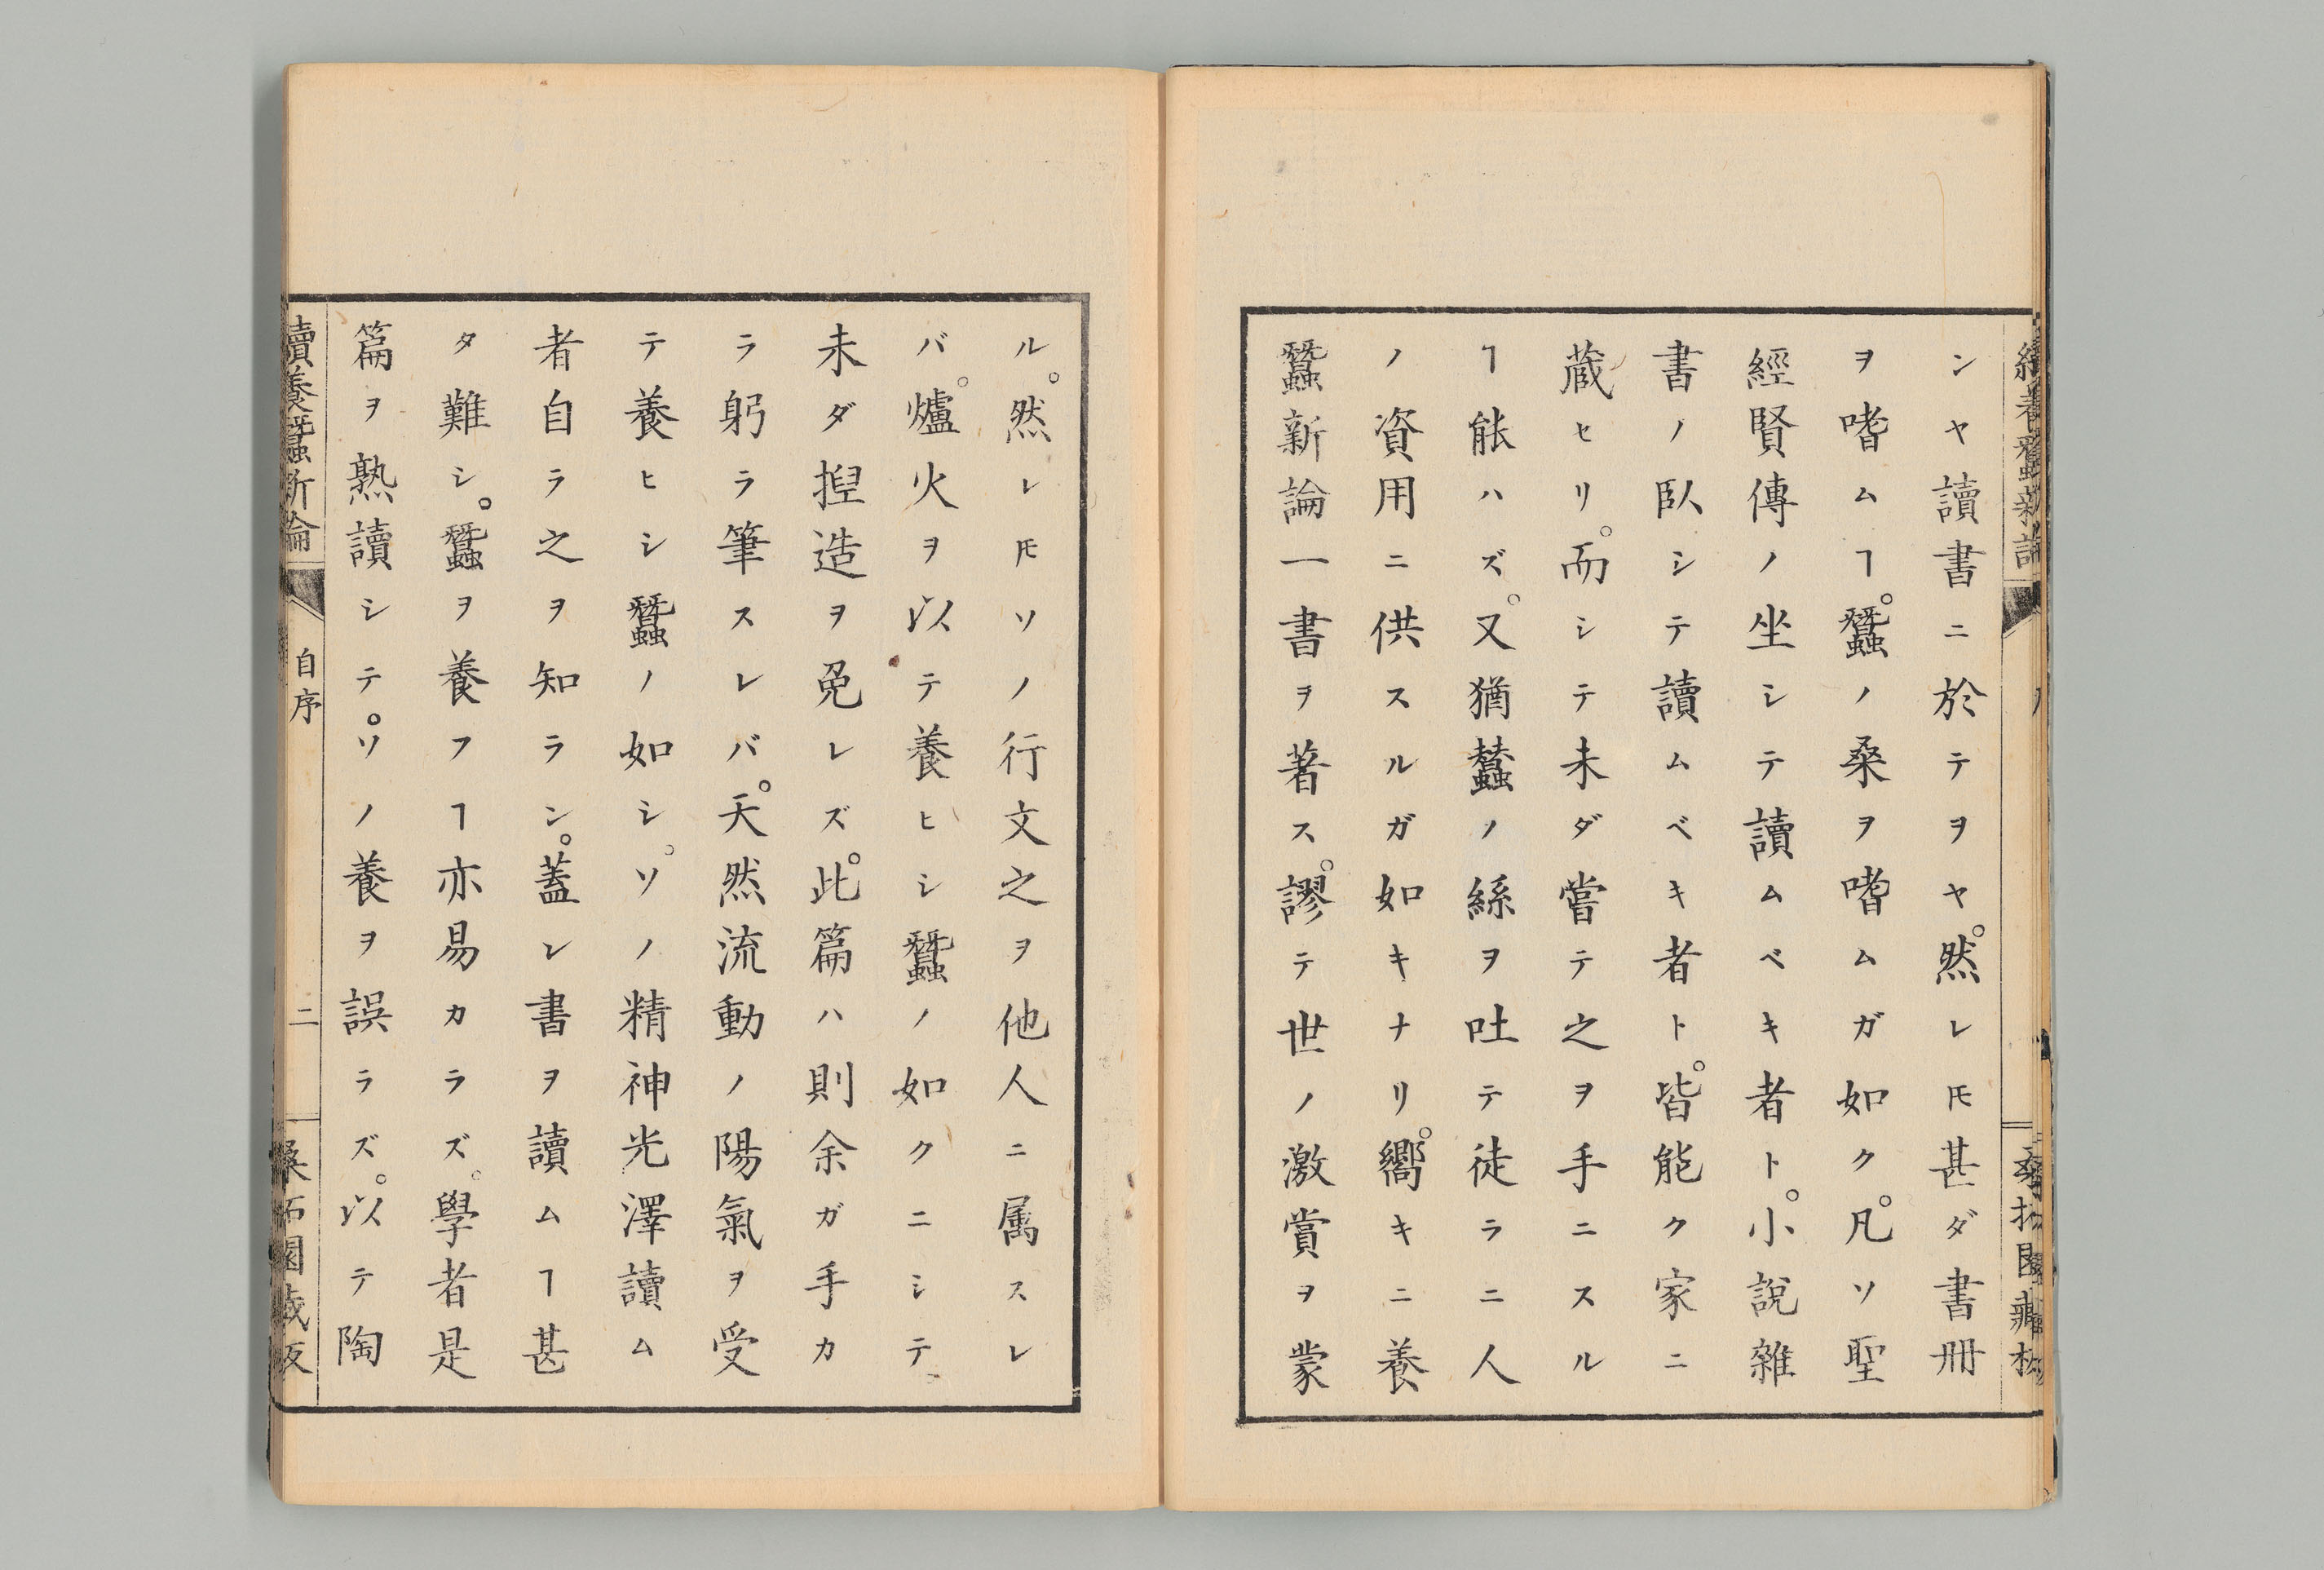 ンヤ讀書ニ於テヲヤ。然レ𪜈甚ダ書冊
ヲ嗜ムヿ。蠶ノ桑ヲ嗜ムガ如ク。凡ソ聖
經賢傳ノ坐シテ讀ムベキ者ト。小說雜
書ノ臥シテ讀ムベキ者ト。皆能ク家ニ
蔵セリ。而シテ未ダ嘗テ之ヲ手ニスル
ヿ能ハズ。又猶蠶ノ絲ヲ吐テ徒ラニ人
ノ資用ニ供スルガ如キナリ。嚮キニ養
蠶新論一書ヲ著ス。謬テ世ノ激賞ヲ蒙
ル。然レ𪜈ソノ行文之ヲ他人ニ属スレ
バ。爐火ヲ以テ養ヒシ蠶ノ如クニシテ。
未ダ揑造ヲ免レズ。此篇ハ則余ガ手カ
ラ躬ラ筆スレバ。天然流動ノ陽氣ヲ受
テ養ヒシ蠶ノ如シ。ソノ精神光澤讀ム
者自ラ之ヲ知ラン。蓋レ書ヲ讀ムヿ甚
タ難シ。蠶ヲ養フヿ亦易カラズ。學者是
篇ヲ熟讀シテ。ソノ養ヲ誤ラズ。以テ陶
續養蠶新論
自序
二
桑柘園蔵版